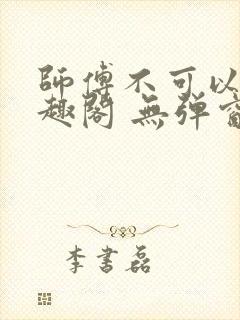 師傅不可以
趣閣 無彈窗
李書磊